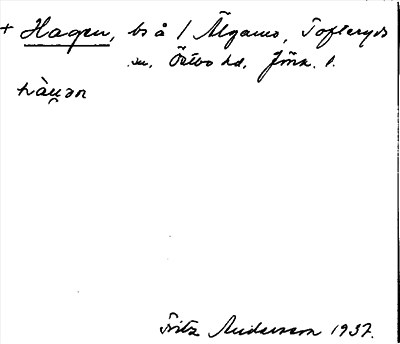 + Hagen, bs å 1 Älganäs, Tofteryds
sn, Östbo hd, Jönk. l.
hàu̯ən
Fritz Andersson 1937.